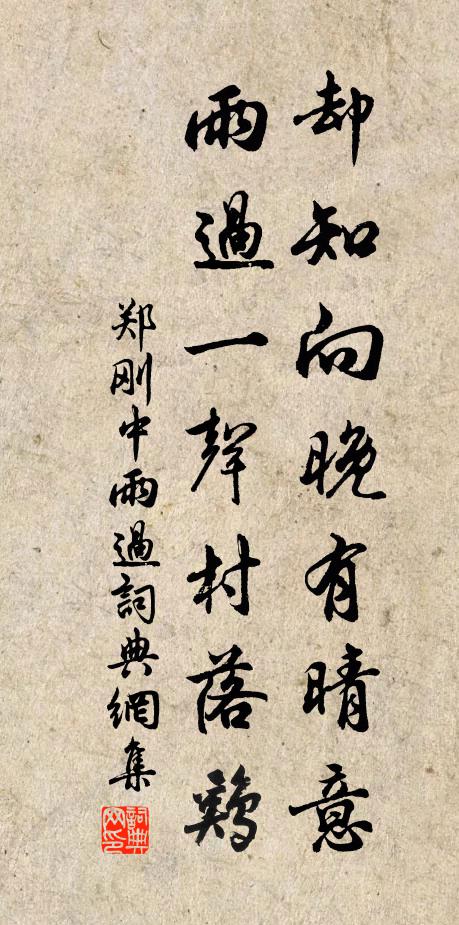 却知向晚有晴意
雨過一聲村落鷄
郑刚中雨過詞典網集
詞典网印